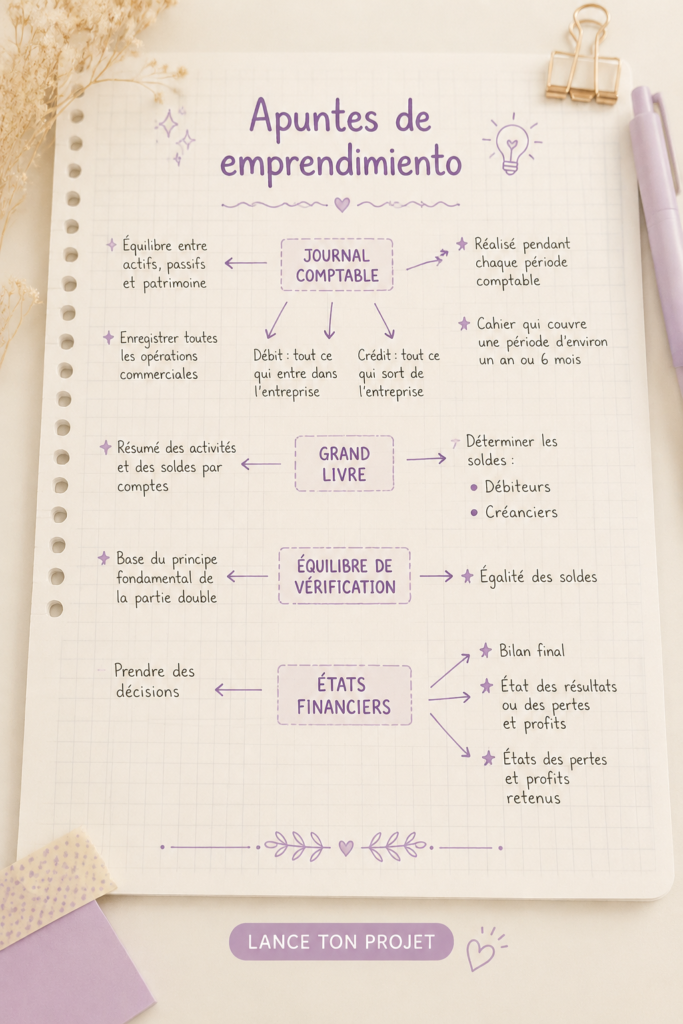 Apuntes de
emprendimiento
Équilibre entre
actifs, passifs
et patrimoine
JOURNAL
COMPTABLE
Réalisé pendant
chaque période
comptable
Enregistrer toutes
les opérations
commerciales
Débit : tout ce
qui entre dans
l'entreprise
Crédit : tout ce
qui sort de
l'entreprise
Cahier qui couvre
une période d'environ
un an ou 6 mois
Résumé des activités
et des soldes par
comptes
GRAND
LIVRE
Déterminer les
soldes :
Débiteurs
Créanciers
Base du principe
fondamental de
la partie double
ÉQUILIBRE DE
VÉRIFICATION
Égalité des soldes
Prendre des
décisions
ÉTATS
FINANCIERS
Bilan final
État des résultats
ou des pertes
et profits
États des pertes
et profits
retenus
LANCE TON PROJET